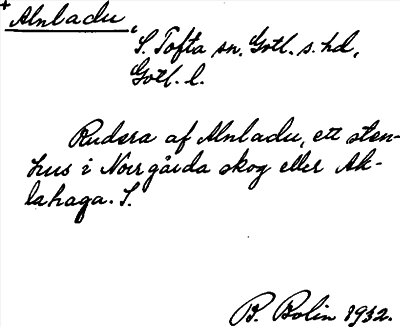 + Alnladu,
S. Tofta sn. Gotl. s. hd,
Gotl. l.
Rudera af Alnladu, ett sten-
hus i Norrgårda skog eller Ak-
lahaga. S.
B. Bolin 1932.